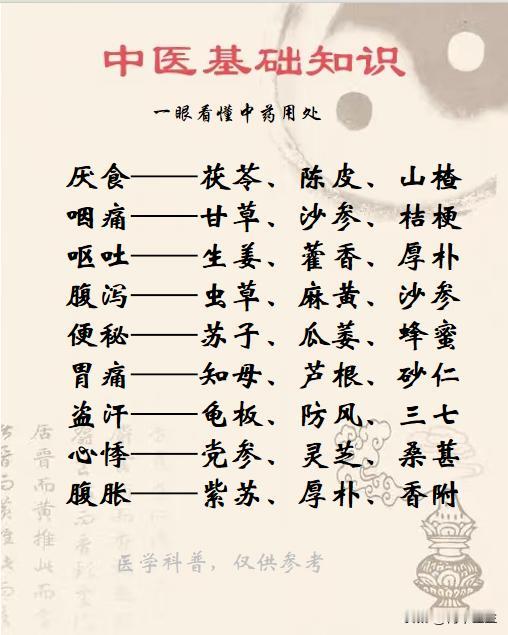 中医基础知识
一眼看懂中药用处
厌食——茯苓、陈皮、山楂
咽痛——甘草、沙参、桔梗
呕吐——生姜、藿香、厚朴
腹泻——虫草、麻黄、沙参
便秘——苏子、瓜蒌、蜂蜜
胃痛——知母、芦根、砂仁
盗汗——龟板、防风、三七
心悸——党参、灵芝、桑葚
腹胀——紫苏、厚朴、香附
医学科普，仅供参考